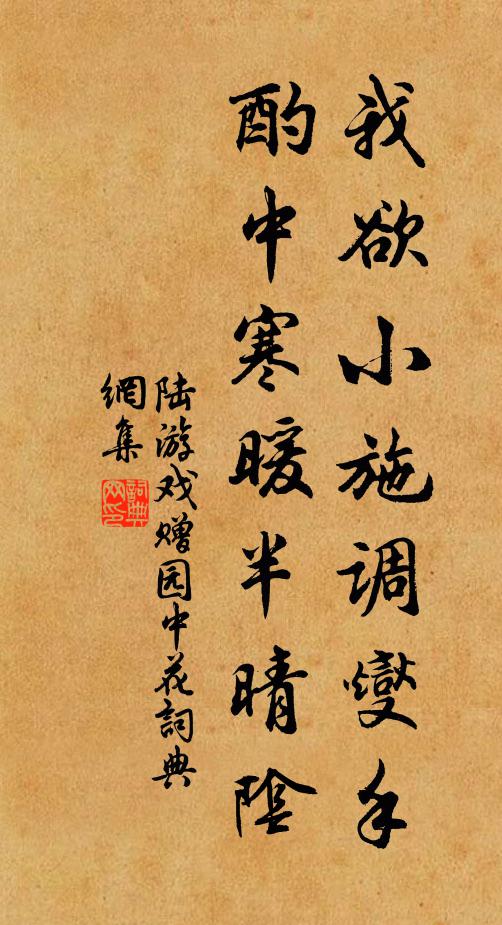 我欲小施调燮手
酌中寒暖半晴陰
陆游戏赠园中花詞典
網集
詞典
网印